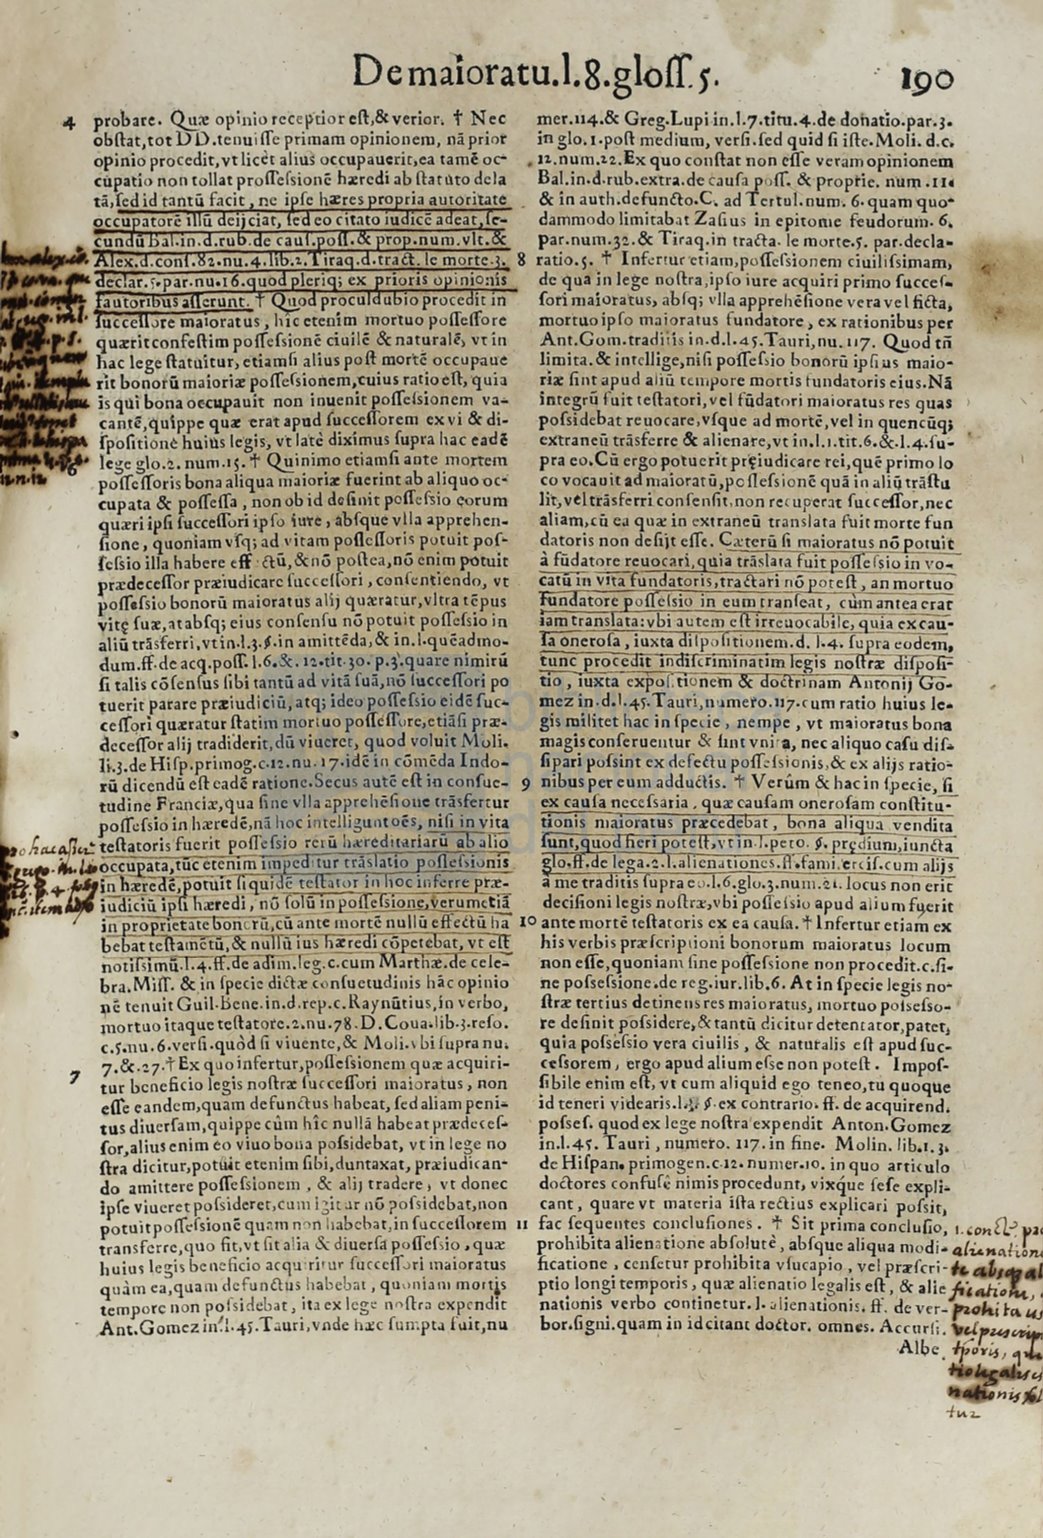 De maioratu.l.8.gloſſ.5.
190
4 probare. Quæ opinio receptior eſt,& verior. † Nec
obſtat,tot DD.tenuiſſe primam opinionem, nã prior
opinio procedit,vt licèt alius occupauerit,ea tamẽ oc-
cupatio non tollat proſſeſsionẽ hæredi ab ſtatuto dela
tã,ſed id tantũ facit, ne ipſe hæres propria autoritate
occupatorẽ illũ deijciat, ſed eo citato iudicẽ adeat,ſe-
cundũ Bal.in.d.rub.de cauſ.poſſ.& prop.num.vlt.&
Alex.d.conſ.82.nu.4.lib.2.Tiraq.d.tract. le morte.3.
declar.5.par.nu.16.quod pleriq; ex prioris opinionis
fautoribus aſſerunt. † Quod proculdubio procedit in
ſucceſſore maioratus, hic etenim mortuo poſſeſſore
quærit confeſtim poſſeſsionẽ ciuilẽ & naturalẽ, vt in
hac lege ſtatuitur, etiamſi alius poſt mortẽ occupaue
rit bonorũ maioriæ poſſeſsionem,cuius ratio eſt, quia
is qui bona occupauit non inuenit poſſeſsionem va-
cantẽ,quippe quæ erat apud ſucceſſorem ex vi & di-
ſpoſitionẽ huius legis, vt latè diximus ſupra hac eadẽ
lege glo.2. num.15. † Quinimo etiamſi ante mortem
poſſeſſoris bona aliqua maioriæ fuerint ab aliquo oc-
cupata & poſſeſſa, non ob id definit poſſeſsio eorum
quæri ipſi ſucceſſori ipſo iure, abſque vlla apprehen-
ſione, quoniam vſq; ad vitam poſſeſſoris potuit poſ-
ſeſsio illa habere effectũ,& nõ poſtea,nõ enim potuit
prædeceſſor præiudicare ſucceſſori, conſentiendo, vt
poſſeſsio bonorũ maioratus alij quæratur,vltra tẽpus
vitę ſuæ,at abſq; eius conſenſu nõ potuit poſſeſsio in
aliũ trãsferri,vt in.l.3.§.in amittẽda,& in.l.quẽadmo-
dum.ff.de acq.poſſ.l.6.&. 12.tit.30. p.3.quare nimirũ
ſi talis cõſenſus ſibi tantũ ad vitã ſuã,nõ ſucceſſori po
tuerit parare præiudiciũ, atq; ideo poſſeſsio eidẽ ſuc-
ceſſori quæratur ſtatim mortuo poſſeſſore,etiãſi præ-
deceſſor alij tradiderit,dũ viueret, quod voluit Moli.
li.3.de Hiſp.primog.c.12.nu.17.idẽ in cõmẽda Indo-
rũ dicendũ eſt eadẽ ratione.Secus autẽ eſt in conſue-
tudine Franciæ,qua ſine vlla apprehẽſione trãsfertur
poſſeſsio in hæredẽ,nã hoc intelligunt oẽs, niſi in vita
teſtatoris fuerit poſſeſsio rerũ hæreditariarũ ab alio
occupata,tũc etenim impeditur trãslatio poſſeſsionis
in hæredẽ,potuit ſiquidẽ teſtator in hoc inferre præ-
iudiciũ ipſi hæredi, nõ ſolũ in poſſeſsione,verumetiã
in proprietate bonorũ,cũ ante mortẽ nullũ effectũ ha
bebat teſtamẽtũ,& nullũ ius hæredi cõpetebat, vt eſt
notiſsimũ.l.4.ff.de adim.leg.c.cum Marthæ.de cele-
bra.Miſſ. & in ſpecie dictæ conſuetudinis hãc opinio
nẽ tenuit Guil.Bene.in.d.rep.c.Raynũtius,in verbo,
mortuo itaque teſtatore.2.nu.78.D.Coua.lib.3.reſo.
c.5.nu.6.verſi.quòd ſi viuente,& Moli.vbi ſupra nu.
7 7.&.27.† Ex quo infertur,poſſeſsionem quæ acquiri-
tur beneficio legis noſtræ ſucceſſori maioratus, non
eſſe eandem,quam defunctus habeat, ſed aliam peni-
tus diuerſam,quippe cùm hîc nullã habeat prædeceſ-
ſor,alius enim eo viuo bona poſsidebat, vt in lege no
ſtra dicitur,potuit etenim ſibi,duntaxat, præiudican-
do amittere poſſeſsionem, & alij tradere, vt donec
ipſe viueret poſsideret,cum igitur nõ poſsidebat,non
potuit poſſeſsionẽ quam non habebat,in ſucceſſorem
transferre,quo fit,vt ſit alia & diuerſa poſſeſsio, quæ
huius legis beneficio acquiritur ſucceſſori maioratus
quàm ea,quam defunctus habebat, quoniam mortis
tempore non poſsidebat, ita ex lege noſtra expendit
Ant.Gomez in.l.45.Tauri,vnde hæc ſumpta fuit,nu
mer.114.& Greg.Lupi in.l.7.titu.4.de donatio.par.3.
in glo.1.poſt medium, verſi.ſed quid ſi iſte.Moli. d.c.
12.num.22.Ex quo conſtat non eſſe veram opinionem
Bal.in.d.rub.extra.de cauſa poſſ. & proprie. num.11.
& in auth.defuncto.C. ad Tertul.num. 6.quam quo-
dammodo limitabat Zaſius in epitome feudorum. 6.
par.num.32.& Tiraq.in tracta. le morte.5. par.decla-
8 ratio.5. † Infertur etiam,poſſeſsionem ciuiliſsimam,
de qua in lege noſtra,ipſo iure acquiri primo ſucceſ-
ſori maioratus, abſq; vlla apprehẽſione vera vel ficta,
mortuo ipſo maioratus fundatore, ex rationibus per
Ant.Gom.traditis in.d.l.45.Tauri,nu.117. Quod tñ
limita.& intellige,niſi poſſeſsio bonorũ ipſius maio-
riæ ſint apud aliũ tempore mortis fundatoris eius.Nã
integrũ fuit teſtatori,vel fũdatori maioratus res quas
poſsidebat reuocare,vſque ad mortẽ,vel in quencũq;
extraneũ trãsferre & alienare,vt in.l.1.tit.6.&.l.4.ſu-
pra eo.Cũ ergo potuerit pręiudicare rei,quẽ primo lo
co vocauit ad maioratũ,poſſeſsionẽ quã in aliũ trãſtu
lit,vel trãsferri conſenſit,non recuperat ſucceſſor,nec
aliam,cũ ea quæ in extraneũ translata fuit morte fun
datoris non deſijt eſſe. Cæterũ ſi maioratus nõ potuit
à fũdatore reuocari,quia trãslata fuit poſſeſsio in vo-
catũ in vita fundatoris,tractari nõ poteſt, an mortuo
fundatore poſſeſsio in eum tranſeat, cùm antea erat
iam translata:vbi autem eſt irreuocabile, quia ex cau-
ſa oneroſa, iuxta diſpoſitionem.d. l.4. ſupra eodem,
tunc procedit indiſcriminatim legis noſtræ diſpoſi-
tio, iuxta expoſitionem & doctrinam Antonij Go-
mez in.d.l.45.Tauri,numero.117.cum ratio huius le-
gis militet hac in ſpecie, nempe, vt maioratus bona
magis conſeruentur & ſint vnita, nec aliquo caſu diſ-
ſipari poſsint ex defectu poſſeſsionis,& ex alijs ratio-
9 nibus per eum adductis. † Verùm & hac in ſpecie, ſi
ex cauſa neceſsaria, quæ cauſam oneroſam conſtitu-
tionis maioratus præcedebat, bona aliqua vendita
ſunt,quod fieri poteſt,vt in.l.peto. §.prędium,iuncta
glo.ff.de lega.2.l.alienationes.ff.fami.erciſ.cum alijs
à me traditis ſupra eo.l.6.glo.3.num.21. locus non erit
deciſioni legis noſtræ,vbi poſſeſsio apud alium fuerit
10 ante mortẽ teſtatoris ex ea cauſa. † Infertur etiam ex
his verbis præſcriptioni bonorum maioratus locum
non eſſe,quoniam ſine poſſeſsione non procedit.c.ſi-
ne poſseſsione.de reg.iur.lib.6. At in ſpecie legis no-
ſtræ tertius detinens res maioratus, mortuo poſseſso-
re definit poſsidere,& tantũ dicitur detentator,patet,
quia poſseſsio vera ciuilis, & naturalis eſt apud ſuc-
ceſsorem, ergo apud alium eſse non poteſt. Impoſ-
ſibile enim eſt, vt cum aliquid ego teneo,tu quoque
id teneri videaris.l.3. §.ex contrario. ff. de acquirend.
poſseſ. quod ex lege noſtra expendit Anton.Gomez
in.l.45. Tauri, numero. 117.in fine. Molin. lib.1.3.
de Hiſpan. primogen.c.12.numer.10. in quo articulo
doctores confuſè nimis procedunt, vixque ſeſe expli-
cant, quare vt materia iſta rectius explicari poſsit,
11 fac ſequentes concluſiones. † Sit prima concluſio,
prohibita alienatione abſolutè, abſque aliqua modi-
ficatione, cenſetur prohibita vſucapio, vel præſcri-
ptio longi temporis, quæ alienatio legalis eſt, & alie
nationis verbo continetur.l.alienationis. ff. de ver-
bor.ſigni.quam in id citant doctor. omnes. Accurſi.
Albe